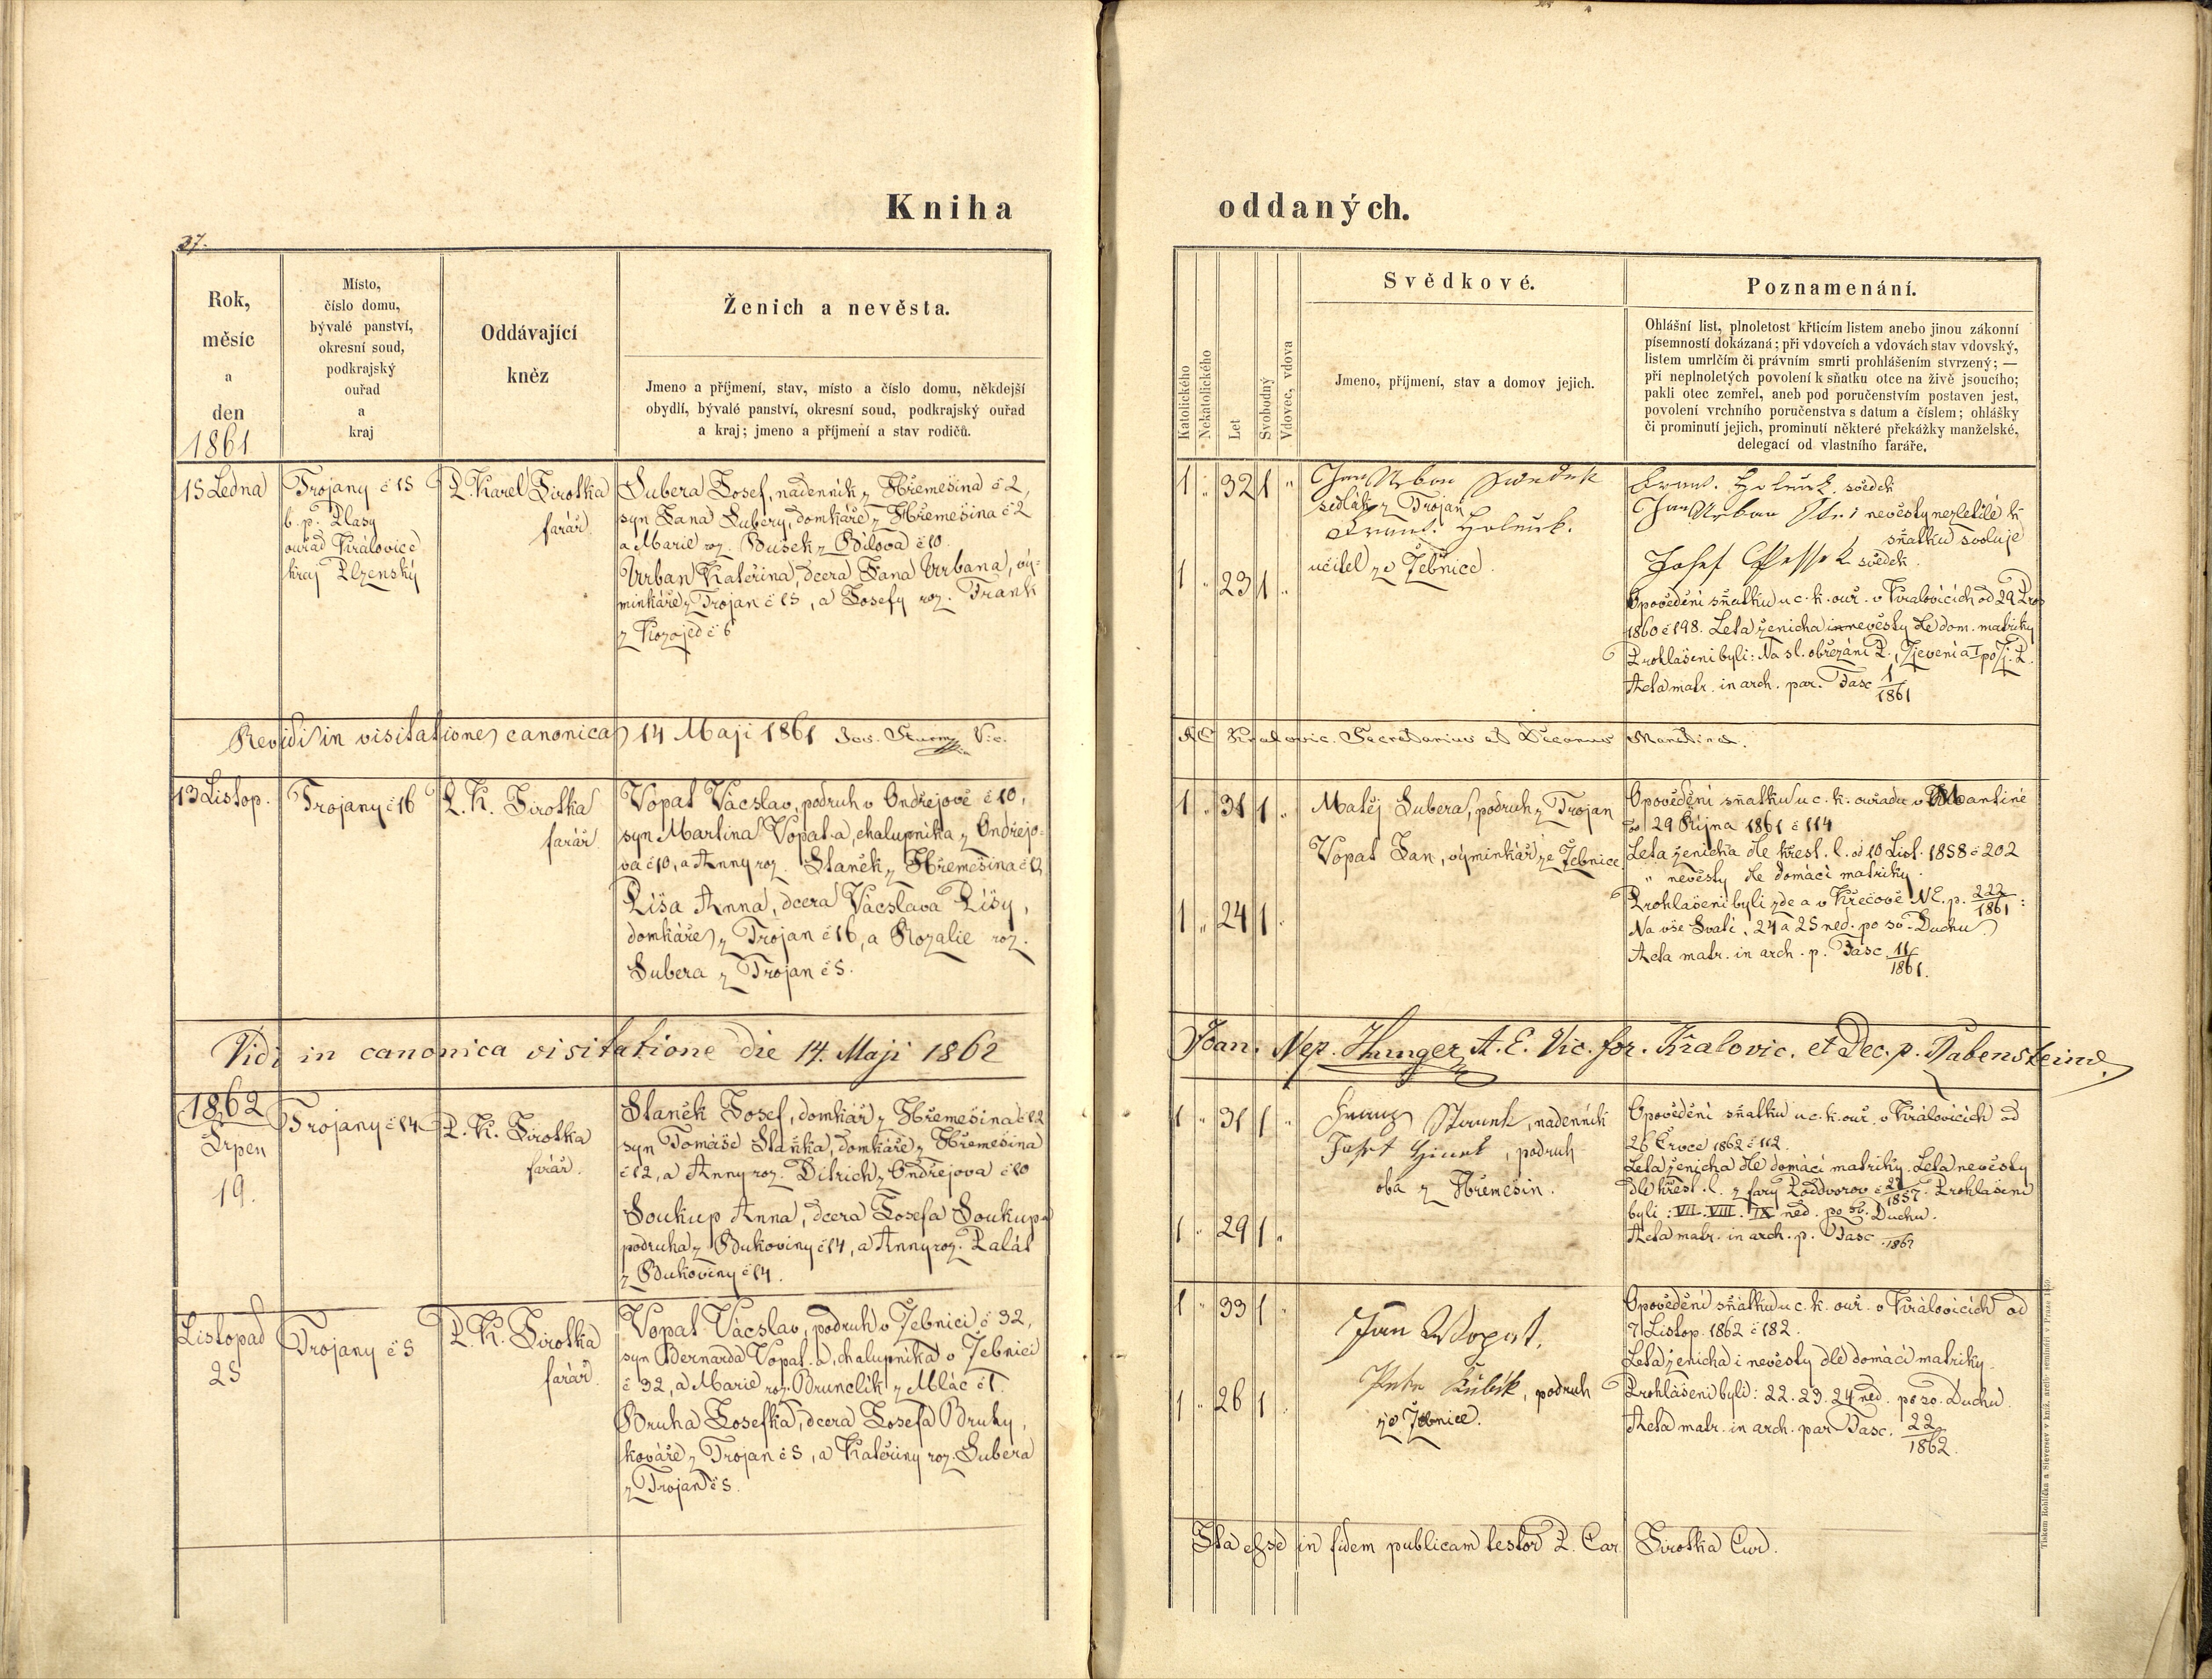 Kniha oddaných.
37.
Rok,
měsíc
a
den
1861
Místo,
číslo domu,
bývalé panství,
okresní soud,
podkrajský
ouřad
a
kraj
Oddávající
kněz
Ženich a nevěsta.
Jmeno a příjmení, stav, místo a číslo domu, někdejší
obydlí, bývalé panství, okresní soud, podkrajský ouřad
a kraj; jmeno a příjmení a stav rodičů.
Katolického
Nekatolického
Let
Svobodný
Vdovec, vdova
Svědkové.
Jmeno, přijmení, stav a domov jejich.
Poznamenání.
Ohlášní list, plnoletost křticím listem anebo jinou zákonní
písemností dokázaná; při vdovcích a vdovách stav vdovský,
listem umrlčím či právním smrti prohlášením stvrzený; —
při neplnoletých povolení k sňatku otce na živě jsoucího;
pakli otec zemřel, aneb pod poručenstvím postaven jest,
povolení vrchního poručenstva s datum a číslem; ohlášky
či prominutí jejich, prominutí některé překážky manželské,
delegací od vlastního faráře.
15 Ledna
Trojany č 15
b. p. Plasy
ouřad Královice
kraj Plzenský
P. Karel Sirotka
farář
Subera Josef, nadenník z Hřemešina č 2,
syn Jana Subery, domkáře z Hřemešina č 2
a Marie roz. Bušek z Bílova č 10.
Urban Kateřina, dcera Jana Urbana, vý-
minkáře z Trojan č 15, a Josefy roz. Frank
z Kozojed č 6
1 " 32 1 "
1 " 23 1 "
Jan Urban
sedlák z Trojan
Frant. Holeček.
učitel ze Žebnice.
Frant. Holeček. svědek
Jan Urban nevěsty nezletilé k
sňatku svoluje
Josef Pessek svědek.
Opovědění sňatku u c. k. ouř. v Kralovicích od 29 Pros
1860 č 198. Leta ženicha i nevěsty dle dom. matriky
Prohlášeni byli: Na sl. obřezání P., Zjevení a I po Zj. P.
Acta matr. in arch. par. Fasc 1/1861
Revidi in visitatione canonica 14 Maji 1861 Jos. Vic.
AE Kralovic. Secretarius et Decanus Manetin.
13 Listop.
Trojany č 16
P. K. Sirotka
farář
Vopat Vácslav, podruh v Ondřejově č 10,
syn Martina Vopat-a, chalupníka z Ondřejo-
va č 10, a Anny roz. Staněk z Hřemešina č 12
Píša Anna, dcera Vácslava Píšy,
domkáře z Trojan č 16, a Rozalie roz.
Subera z Trojan č 5.
1 " 31 1 "
1 " 24 1 "
Matěj Subera, podruh z Trojan
Vopat Jan, výminkář ze Žebnice
Opovědění sňatku u c. k. ouřadu v Mantině
29 Října 1861 č 114
Leta ženicha dle křest. l. od 10 List. 1858 č 202
" nevěsty dle domácí matriky.
Prohlášeni byli zde a v Křečově NE. p. 222/1861:
Na vše Svatí, 24 a 25 ned. po sv. Duchu
Acta matr. in arch. p. Fasc 11/1861.
Vidi in canonica visitatione die 14. Maji 1862
Joan. Nep. Hunger, A. E. Vic. for. Kralovic. et Dec. p. Rabensteinae.
1862
Srpen
19.
Trojany č 14
P. K. Sirotka
farář.
Staněk Josef, domkář z Hřemešina č 12
syn Tomáše Staňka, domkáře z Hřemešina
č 12, a Anny roz. Ditrich z Ondřejova č 10
Soukup Anna, dcera Josefa Soukupa
podruha z Bukoviny č 14, a Anny roz. Palát
z Bukoviny č 14.
1 " 31 1 "
1 " 29 1 "
Franz Staněk, nadenník
Josef, podruh
oba z Hřemešin.
Opovědění sňatku u c. k. ouř. v Královicích od
26 Črvce 1862 č 112.
Leta ženicha dle domácí matriky. Leta nevěsty
dle křest. l. z fary Potvorov č 27/1857. Prohlášeni
byli: VII. VIII. IX ned. po sv. Duchu.
Acta matr. in arch. p. Fasc 1862
Listopad
25
Trojany č 5
P. K. Sirotka
farář.
Vopat Vácslav, podruh v Žebnici č 32,
syn Bernarda Vopat-a, chalupníka v Žebnici
č 32, a Marie roz. Brunclík z Mláč č 1.
Bruha Josefka, dcera Josefa Bruhy,
kováře z Trojan č 5, a Kateřiny roz. Subera
z Trojan č 5.
1 " 33 1 "
1 " 26 1 "
Jan Wopat,
Petr Kubík, podruh
ze Žebnice.
Opovědění sňatku u c. k. ouř. v Královicích od
7 Listop. 1862 č 182.
Leta ženicha i nevěsty dle domácí matriky.
Prohlášeni byli: 22. 23. 24 ned. po sv. Duchu.
Acta matr. in arch. par Fasc. 22/1862.
Ita esse in fidem publicam testor P. Car. Sirotka Cur.